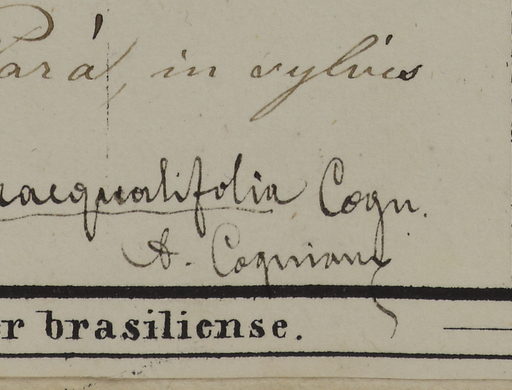 Pará, in sylvis
aequalifolia Cogn.
A. Cogniaux
r brasiliense.